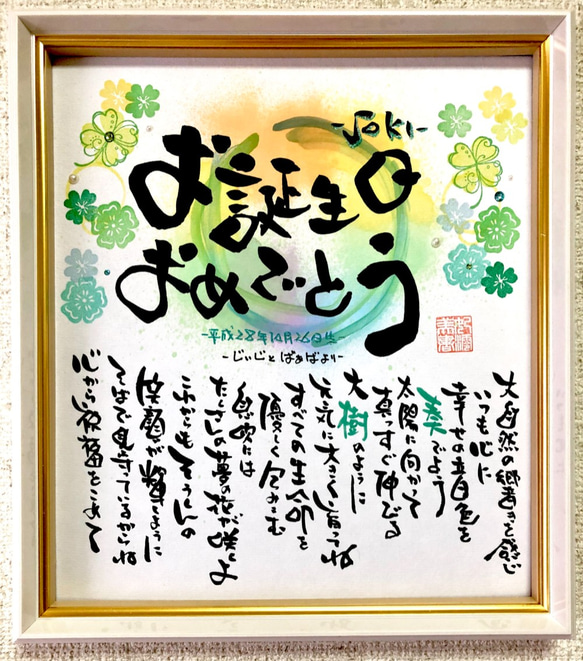 -SOKI-
お誕生日
おめでとう
-平成28年10月26日生-
-じぃじと ばぁばより-
大自然の響きを感じ
いつも心に
幸せの音色を
奏でよう
太陽に向かって
真っすぐ伸びる
大樹のように
元気に大きく育ってね
すべての生命を
優しく包みこむ
息吹には
たくさんの夢の花が咲くよ
これからもそうくんの
笑顔が輝くように
そばで見守っているからね
心から祝福をこめて